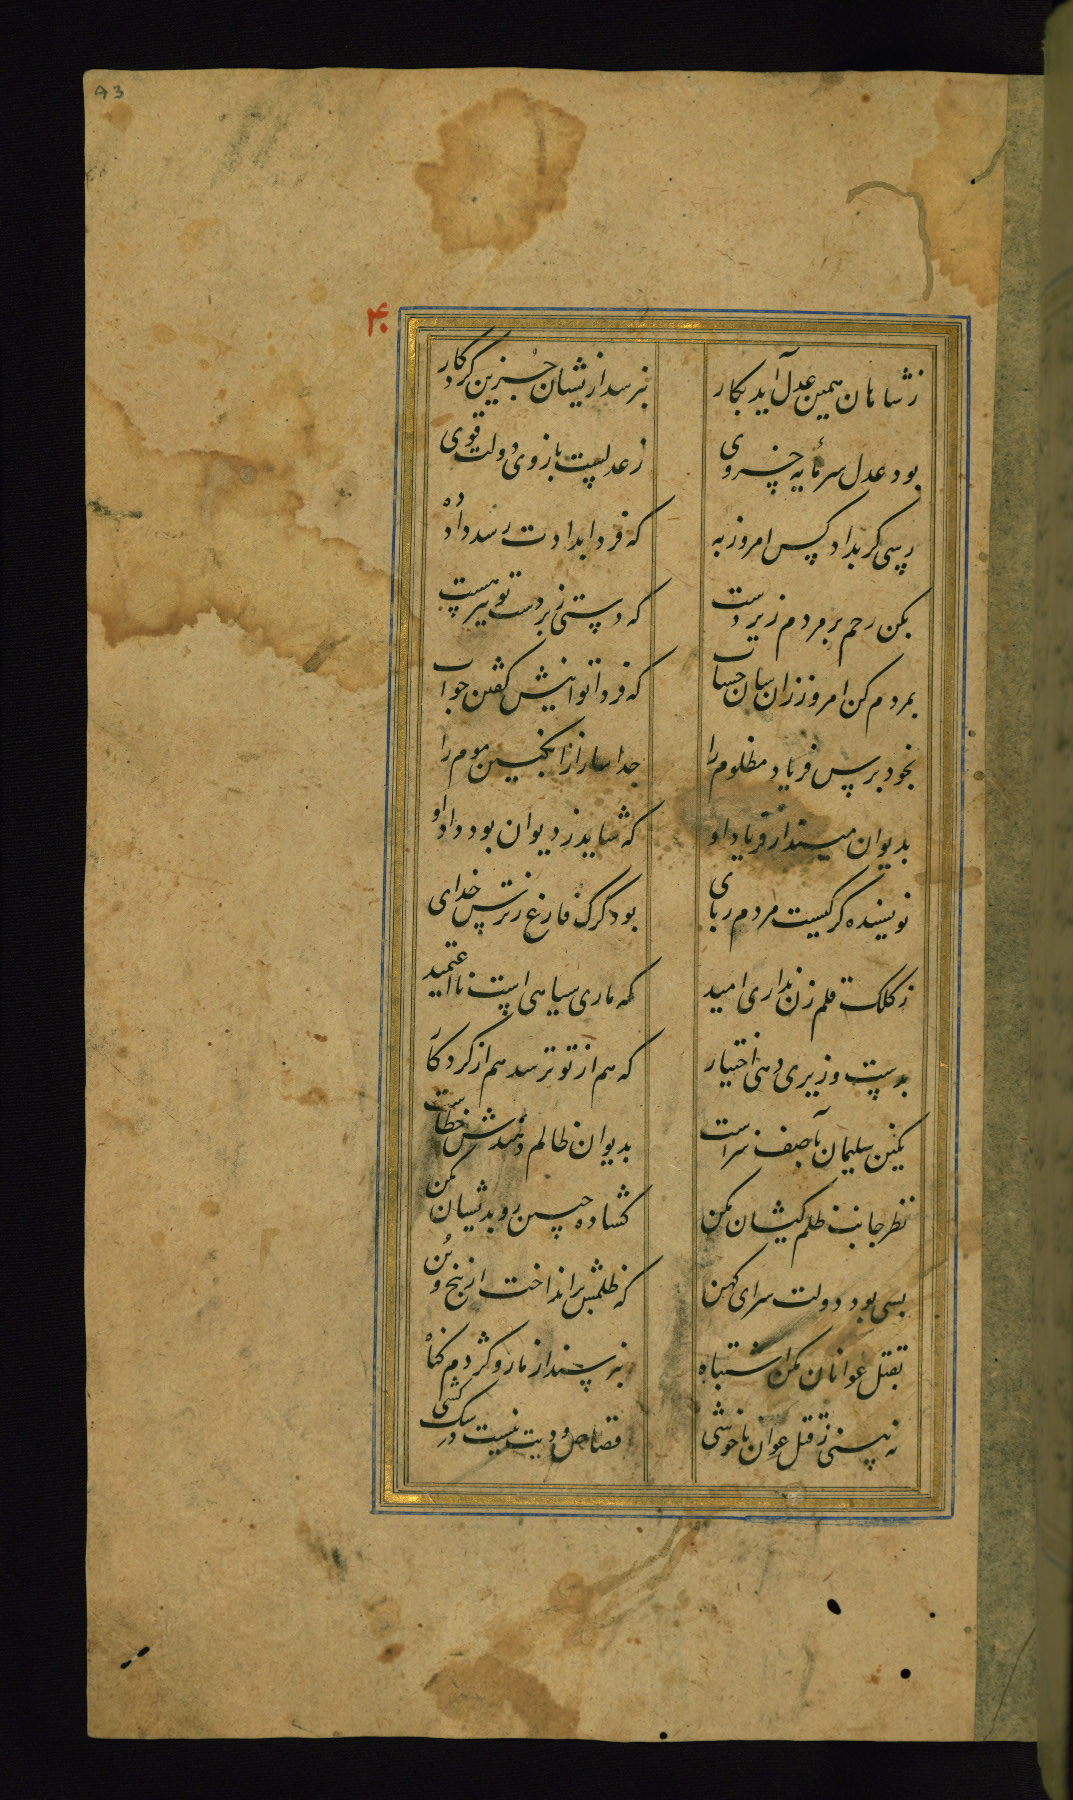 93
۴۰
ز شاهان همین عدل آید بکار
نپرسد ازیشان جز این کردگار
بود عدل سرمایهٔ خسروی
ز عدلست بازوی دولت قوی
رسی گر بداد کس امروز به
که فردا بدادت رسد داد ده
بکن رحم بر مردم زیردست
که دستی زبردست تو نیز هست
بمردم کن امروز زان سان حساب
که فردا توانیش گفتن جواب
بخود برس فریاد مظلوم را
جدا ساز از انگبین موم را
بدیوان مینداز فریاد او
که شاید ز دیوان بود داد او
نویسنده گرگیست مردم ربای
بود گرگ فارغ ز ترس خدای
ز کلک قلم زن نداری امید
که ماری سیاهی است نااعتمید
بدست وزیری دهی اختیار
که هم از تو ترسد هم از کردگار
نگین سلیمان بآصف سزاست
بدیوان ظالم دهندش خطاست
نظر جانب ظلم کیشان مکن
گشاده جبین رو بدیشان مکن
بسی بود دولت سرای کهن
که ظلمش برانداخت از بیخ و بن
بقتل عوانان مکن اشتباه
نپرسند از مار و کژدم گناه
نه بینی ز قتل عوان ناخوشی
قصاص و دیت نیست در سگ کشی